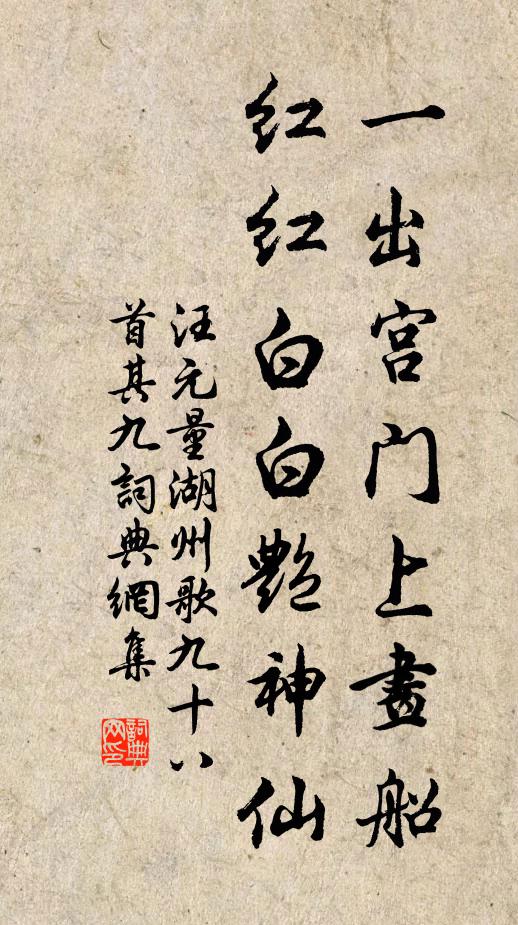 一出宫门上畫船
红红白白艷神仙
汪元量湖州歌九十八
首其九詞典網集
詞典網印